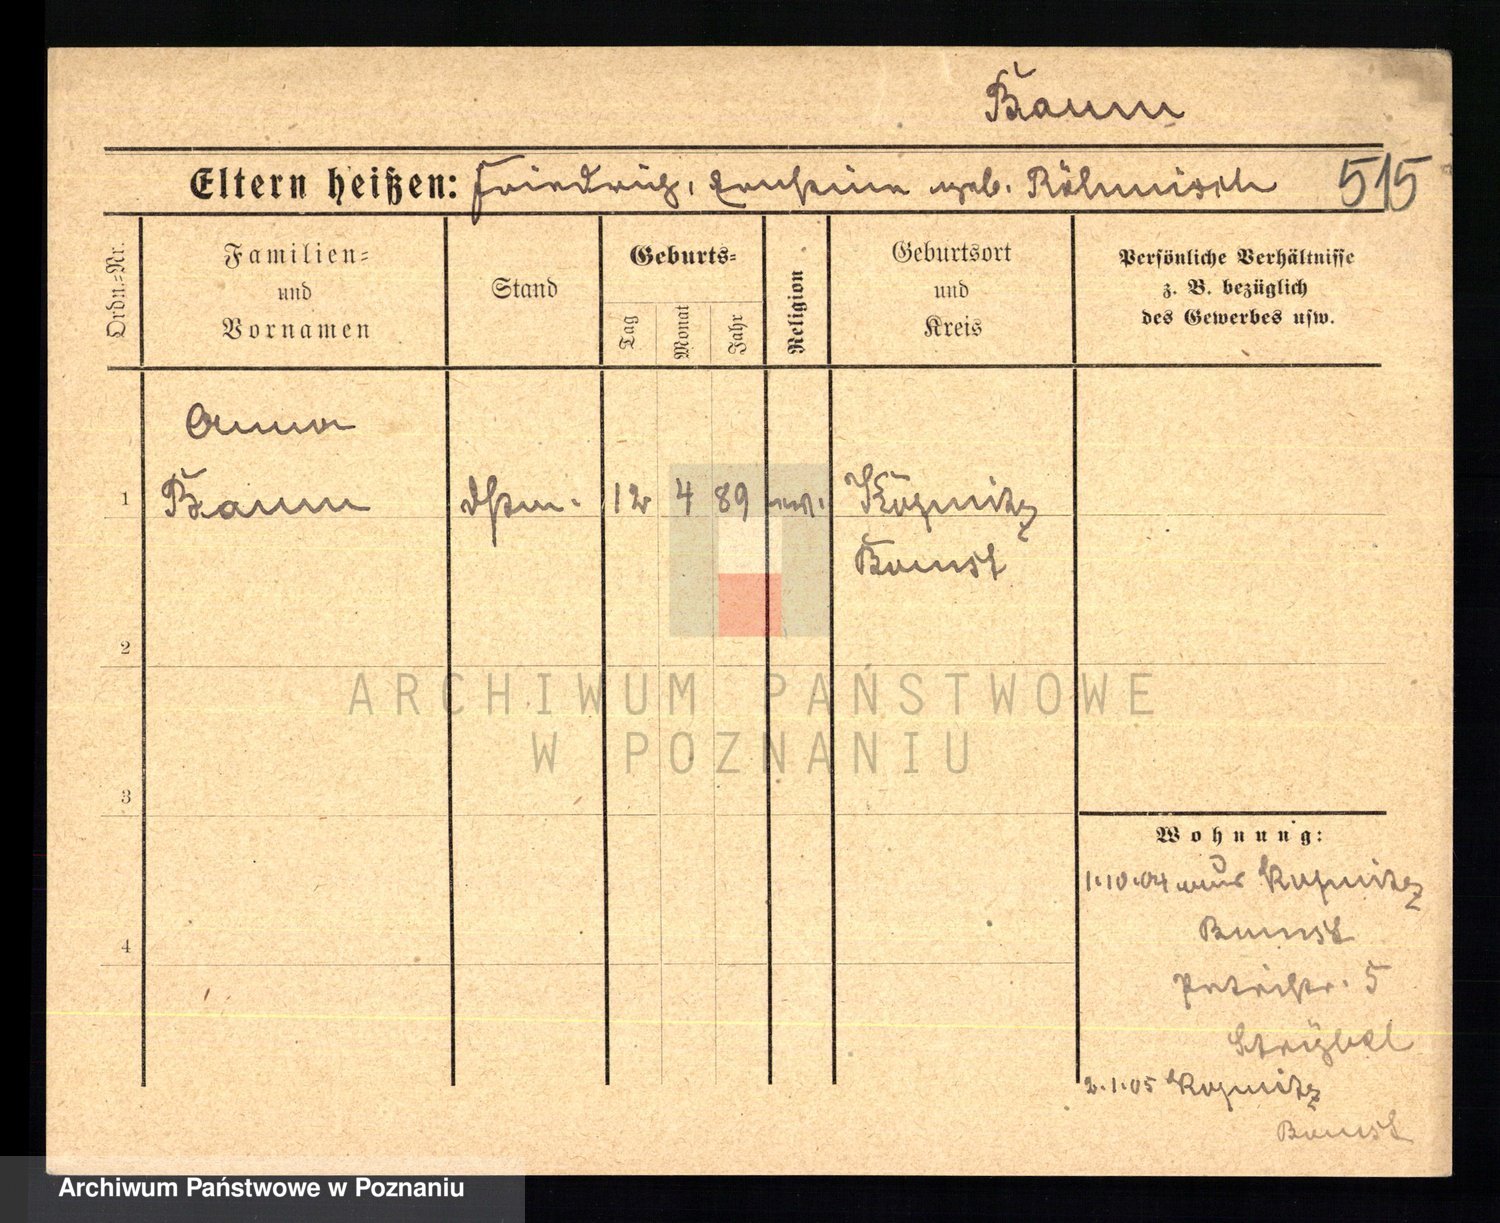 Baum
Eltern heißen: Friedrich, Ernestine geb. Röhmisch 515
Ordn.-Nr.
Familien-
und
Vornamen
Stand
Geburts-
Tag
Monat
Jahr
Religion
Geburtsort
und
Kreis
Persönliche Verhältnisse
z. B. bezüglich
des Gewerbes usw.
Anna
1 Baum 12 4 89 ev. Köpnitz
Bomst
2
ARCHIWUM PAŃSTWOWE
W POZNANIU
3
Wohnung:
1.10.04 aus Kopnitz
Bomst
5
4
2.1.05 Kopnitz
Bomst
Archiwum Państwowe w Poznaniu